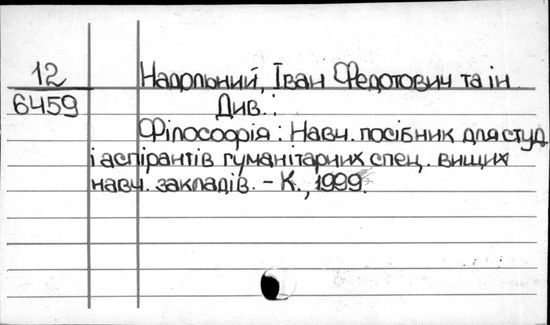 12
6459
Надольний, Іван Федотович та ін.
Див.:
Філософія: Навч. посібник для студ
і аспірантів гуманітарних спец. вищих
навч. закладів. - К., 1999.